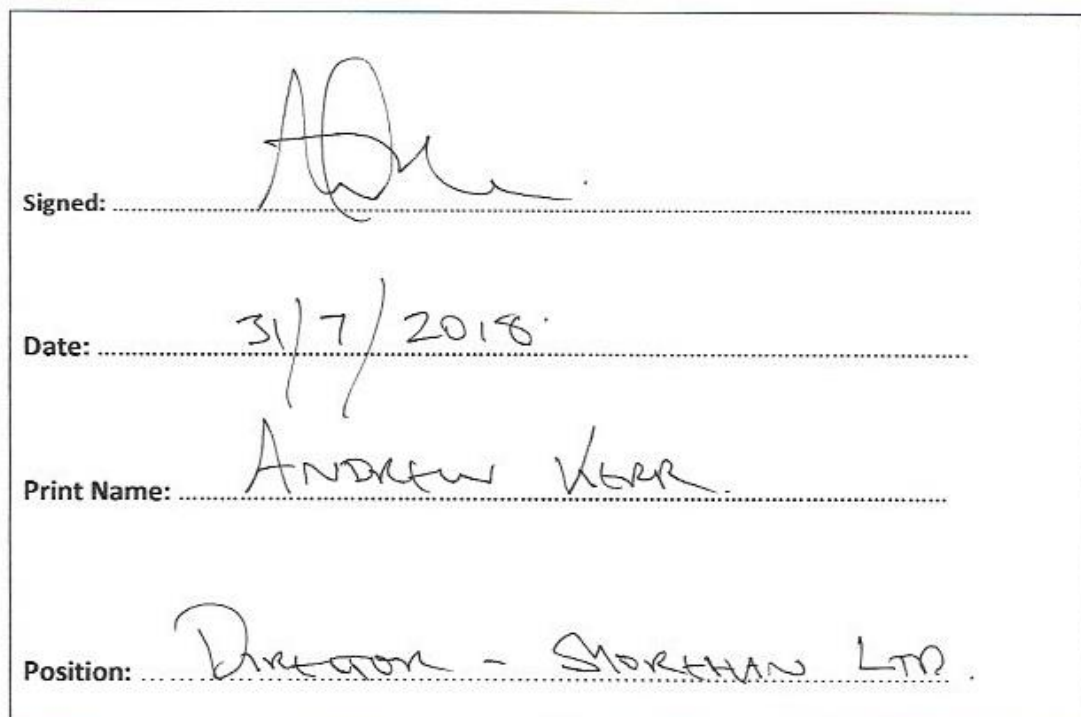 Signed:
Date: 31/7/2018.
Print Name: ANDREW KERR.
Position: DIRECTOR - LTD.